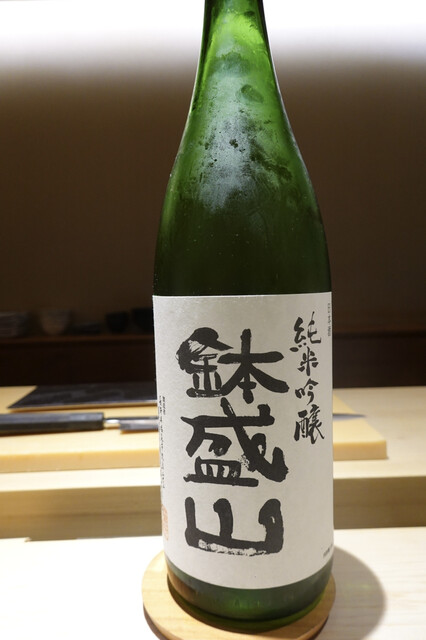 純米吟醸
鉢盛山